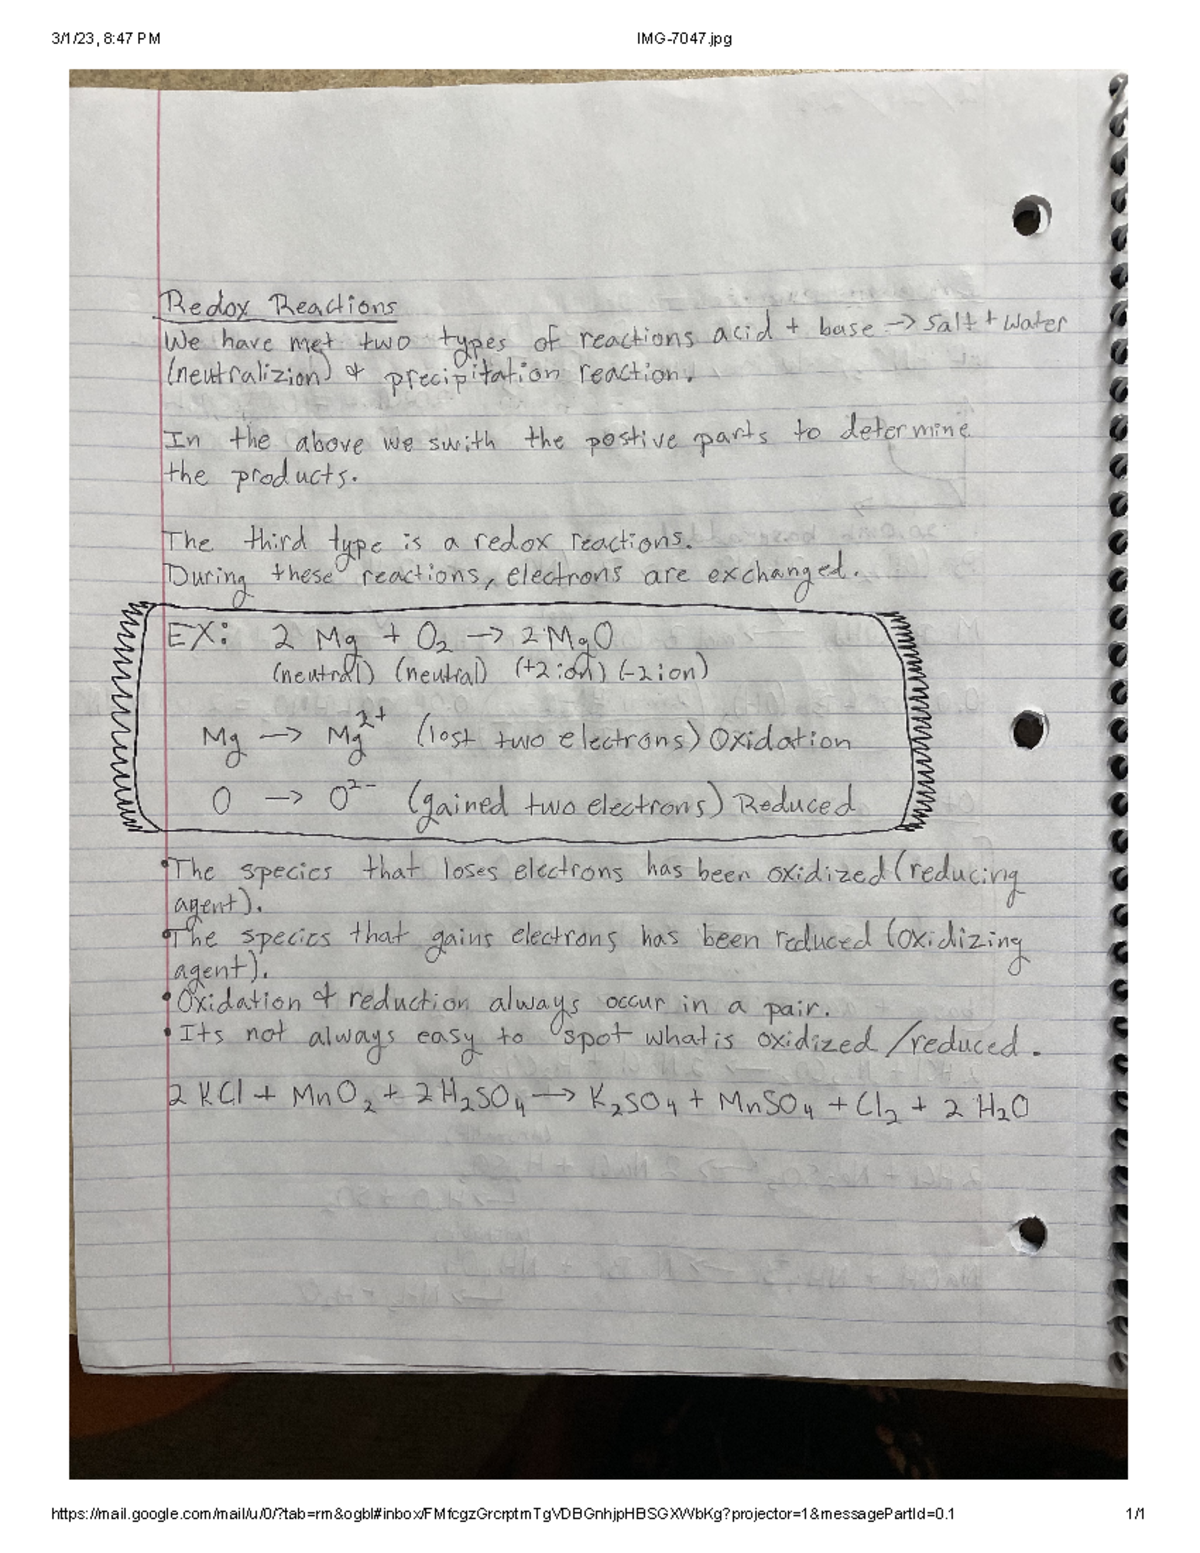 3/1/23, 8:47 PM
IMG-7047.jpg
Redox Reactions
We have met two types of reactions acid + base → salt + water
(neutralizion) & precipitation reaction.
In the above we swith the postive parts to determine
the products.
The third type is a redox reactions.
During these reactions, electrons are exchanged.
EX: 2 Mg + O₂ → 2 MgO
(neutral) (neutral) (+2 ion) (-2 ion)
Mg → Mg²⁺ (lost two electrons) Oxidation
O → O²⁻ (gained two electrons) Reduced
•The species that loses electrons has been oxidized (reducing
agent).
•The species that gains electrons has been reduced (oxidizing
agent).
•Oxidation & reduction always occur in a pair.
•Its not always easy to spot what is oxidized/reduced.
2 KCl + MnO₂ + 2 H₂SO₄ → K₂SO₄ + MnSO₄ + Cl₂ + 2 H₂O
https://mail.google.com/mail/u/0/?tab=rm&ogbl#inbox/FMfcgzGrcrptmTgVDBGnhjpHBSGXWbKg?projector=1&messagePartId=0.1
1/1